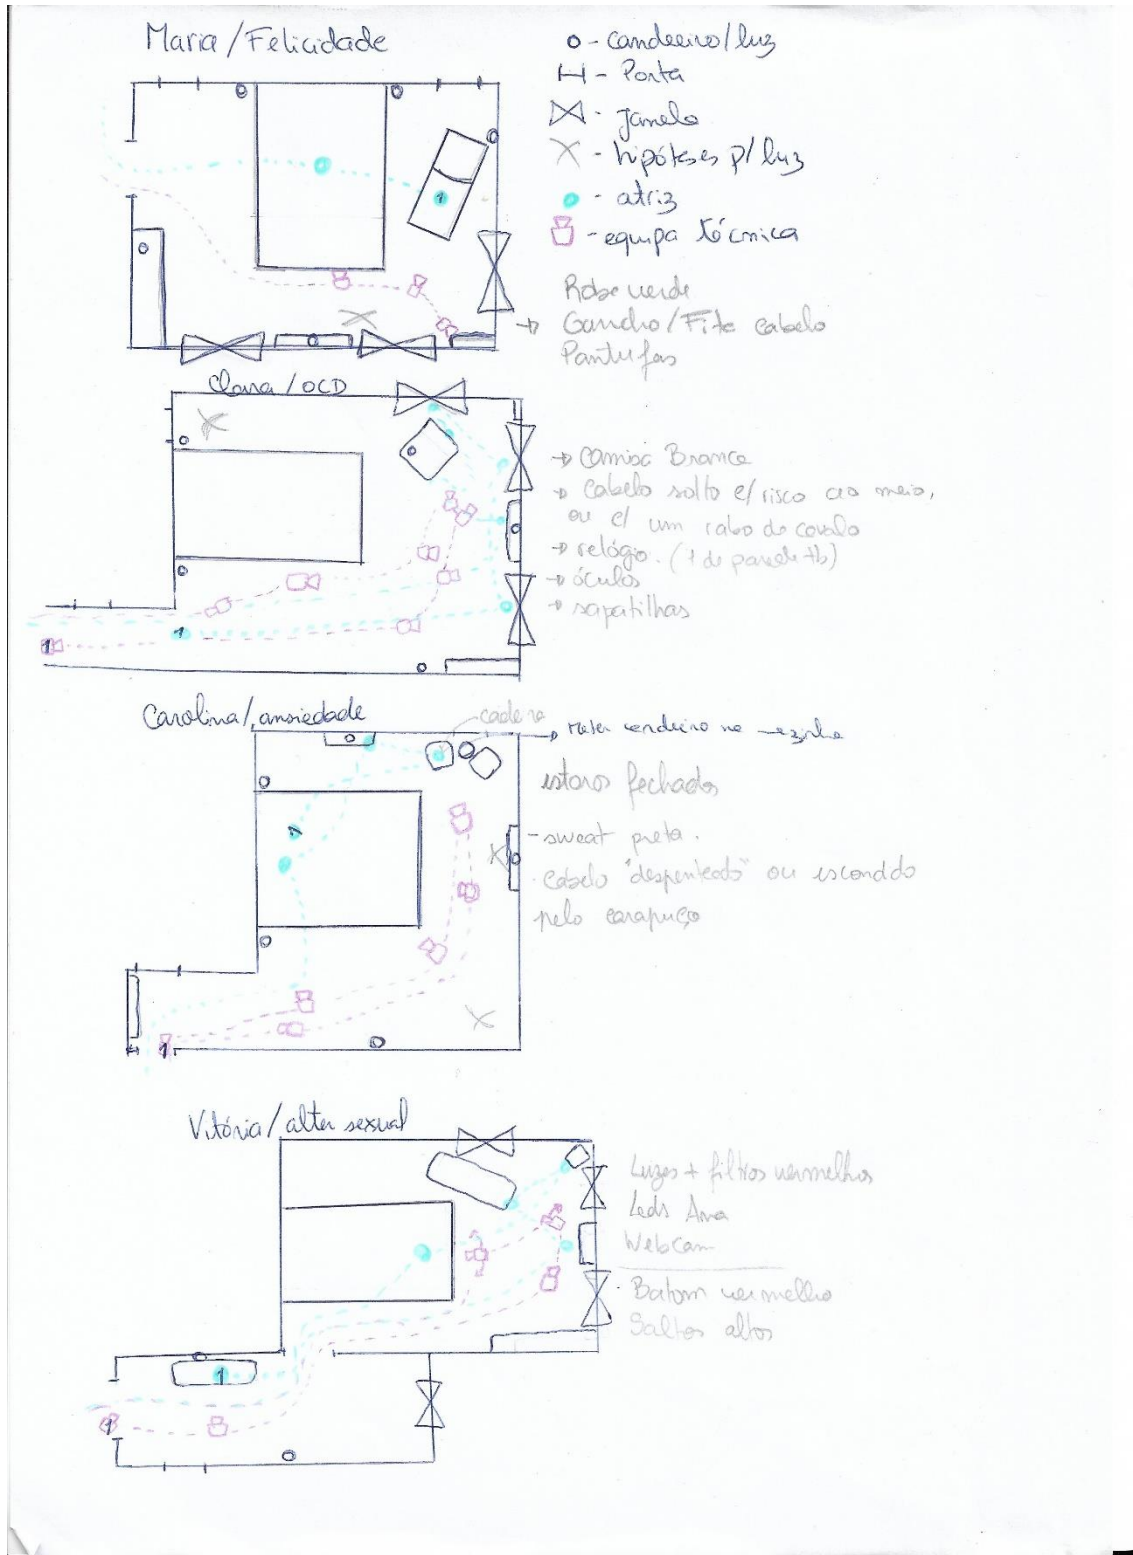 Maria / Felicidade
o - candeeiro/luz
- Porta
- janela
- hipóteses p/ luz
- atriz
- equipa técnica
Robe verde
Gancho/Fita cabelo
Pantufas
1
Clara / OCD
Camisa Branca
Cabelo solto c/risco ao meio,
ou c/ um rabo de cavalo
relógio. (1 de parede tb)
óculos
sapatilhas
1
1
Carolina/ansiedade
cadeira
meter candeeiro na mezinha
estoros fechados
- sweat preta.
- Cabelo "despenteado" ou escondido
pelo carapuço
1
1
Vitória/alter sexual
Luzes + filtros vermelhos
Leds Ana
Webcam
Batom vermelho
Saltos altos
1
1